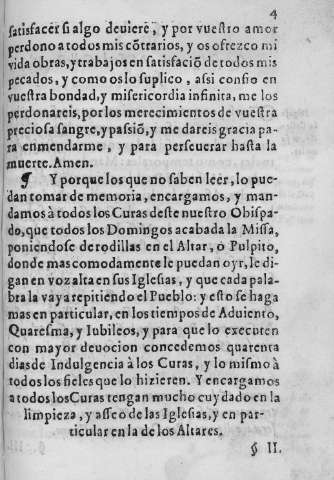 4
satisfacer si algo deuiere, y por vuestro amor
perdono a todos mis cõtrarios, y os ofrezco mi
vida obras, y trabajos en satisfaciõ de todos mis
pecados, y como os lo suplico, assi confio en
vuestra bondad, y misericordia infinita, me los
perdonareis, por los merecimientos de vuestra
preciosa sangre, y passiõ, y me dareis gracia pa-
ra enmendarme, y para perseuerar hasta la
muerte. Amen.
¶ Y porque los que no saben leer, lo pue-
dan tomar de memoria, encargamos, y man-
damos à todos los Curas deste nuestro Obispa-
do, que todos los Domingos acabada la Missa,
poniendose de rodillas en el Altar, o Pulpito,
donde mas comodamente le puedan oyr, le di-
gan en voz alta en sus Iglesias, y que cada pala-
bra la vaya repitiendo el Pueblo: y esto se haga
mas en particular, en los tiempos de Aduiento,
Quaresma, y Iubileos, y para que lo executen
con mayor deuocion concedemos quarenta
dias de Indulgencia à los Curas, y lo mismo à
todos los fieles que lo hizieren. Y encargamos
a todos los Curas tengan mucho cuydado en la
limpieza, y asseo de las Iglesias, y en par-
ticular en la de los Altares.
§ II.